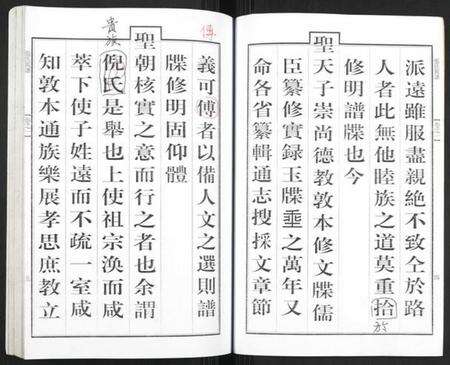 派遠雖服盡親絶不致仝於路
人者此無他睦族之道莫重拾
於
修明譜牒也今
聖天子崇尚德教敦本修文牒儒
臣纂修實録玉牒埀之萬年又
命各省纂輯通志搜採文章節
傳
義可傳者以備人文之選則譜
牒修明固仰體
聖朝核實之意而行之者也余謂
貴族
倪氏是舉也上使祖宗渙而咸
萃下使子姓遠而不疏一室咸
知敦本通族樂展孝思庶教立